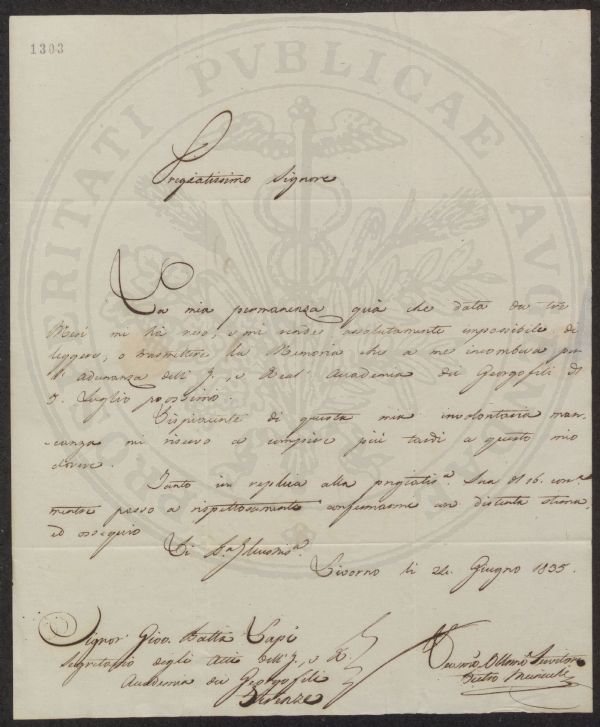 1303
PROSPERITATI PVBLICAE AVGENDAE
Pregiatissimo Signore
La mia permanenza quà che data da tre
Mesi mi ha reso, e mi rende assolutamente impossibile di
leggere, o trasmettere la Memoria che a me incombeva per
l'adunanza dell' I., e Real' Accademia dei Georgofili di
5. Luglio prossimo.
Dispiacente di questa mia involontaria man-
canza mi riservo a compire più tardi a questo mio
dovere.
Tanto in replica alla pregiatis.ª Sua de' 16. corr.e
mentre passo a rispettosamente confermarme con distinta stima,
ed ossequio
Di V.ª Illustrma.
Livorno li 24. Giugno 1835.
Signor Giov. Batta Lapi
Segretario degli Atti dell' I., e R.
Accademia dei Georgofili
Firenze
Devmo. Obbmo. Servitore
Pietro